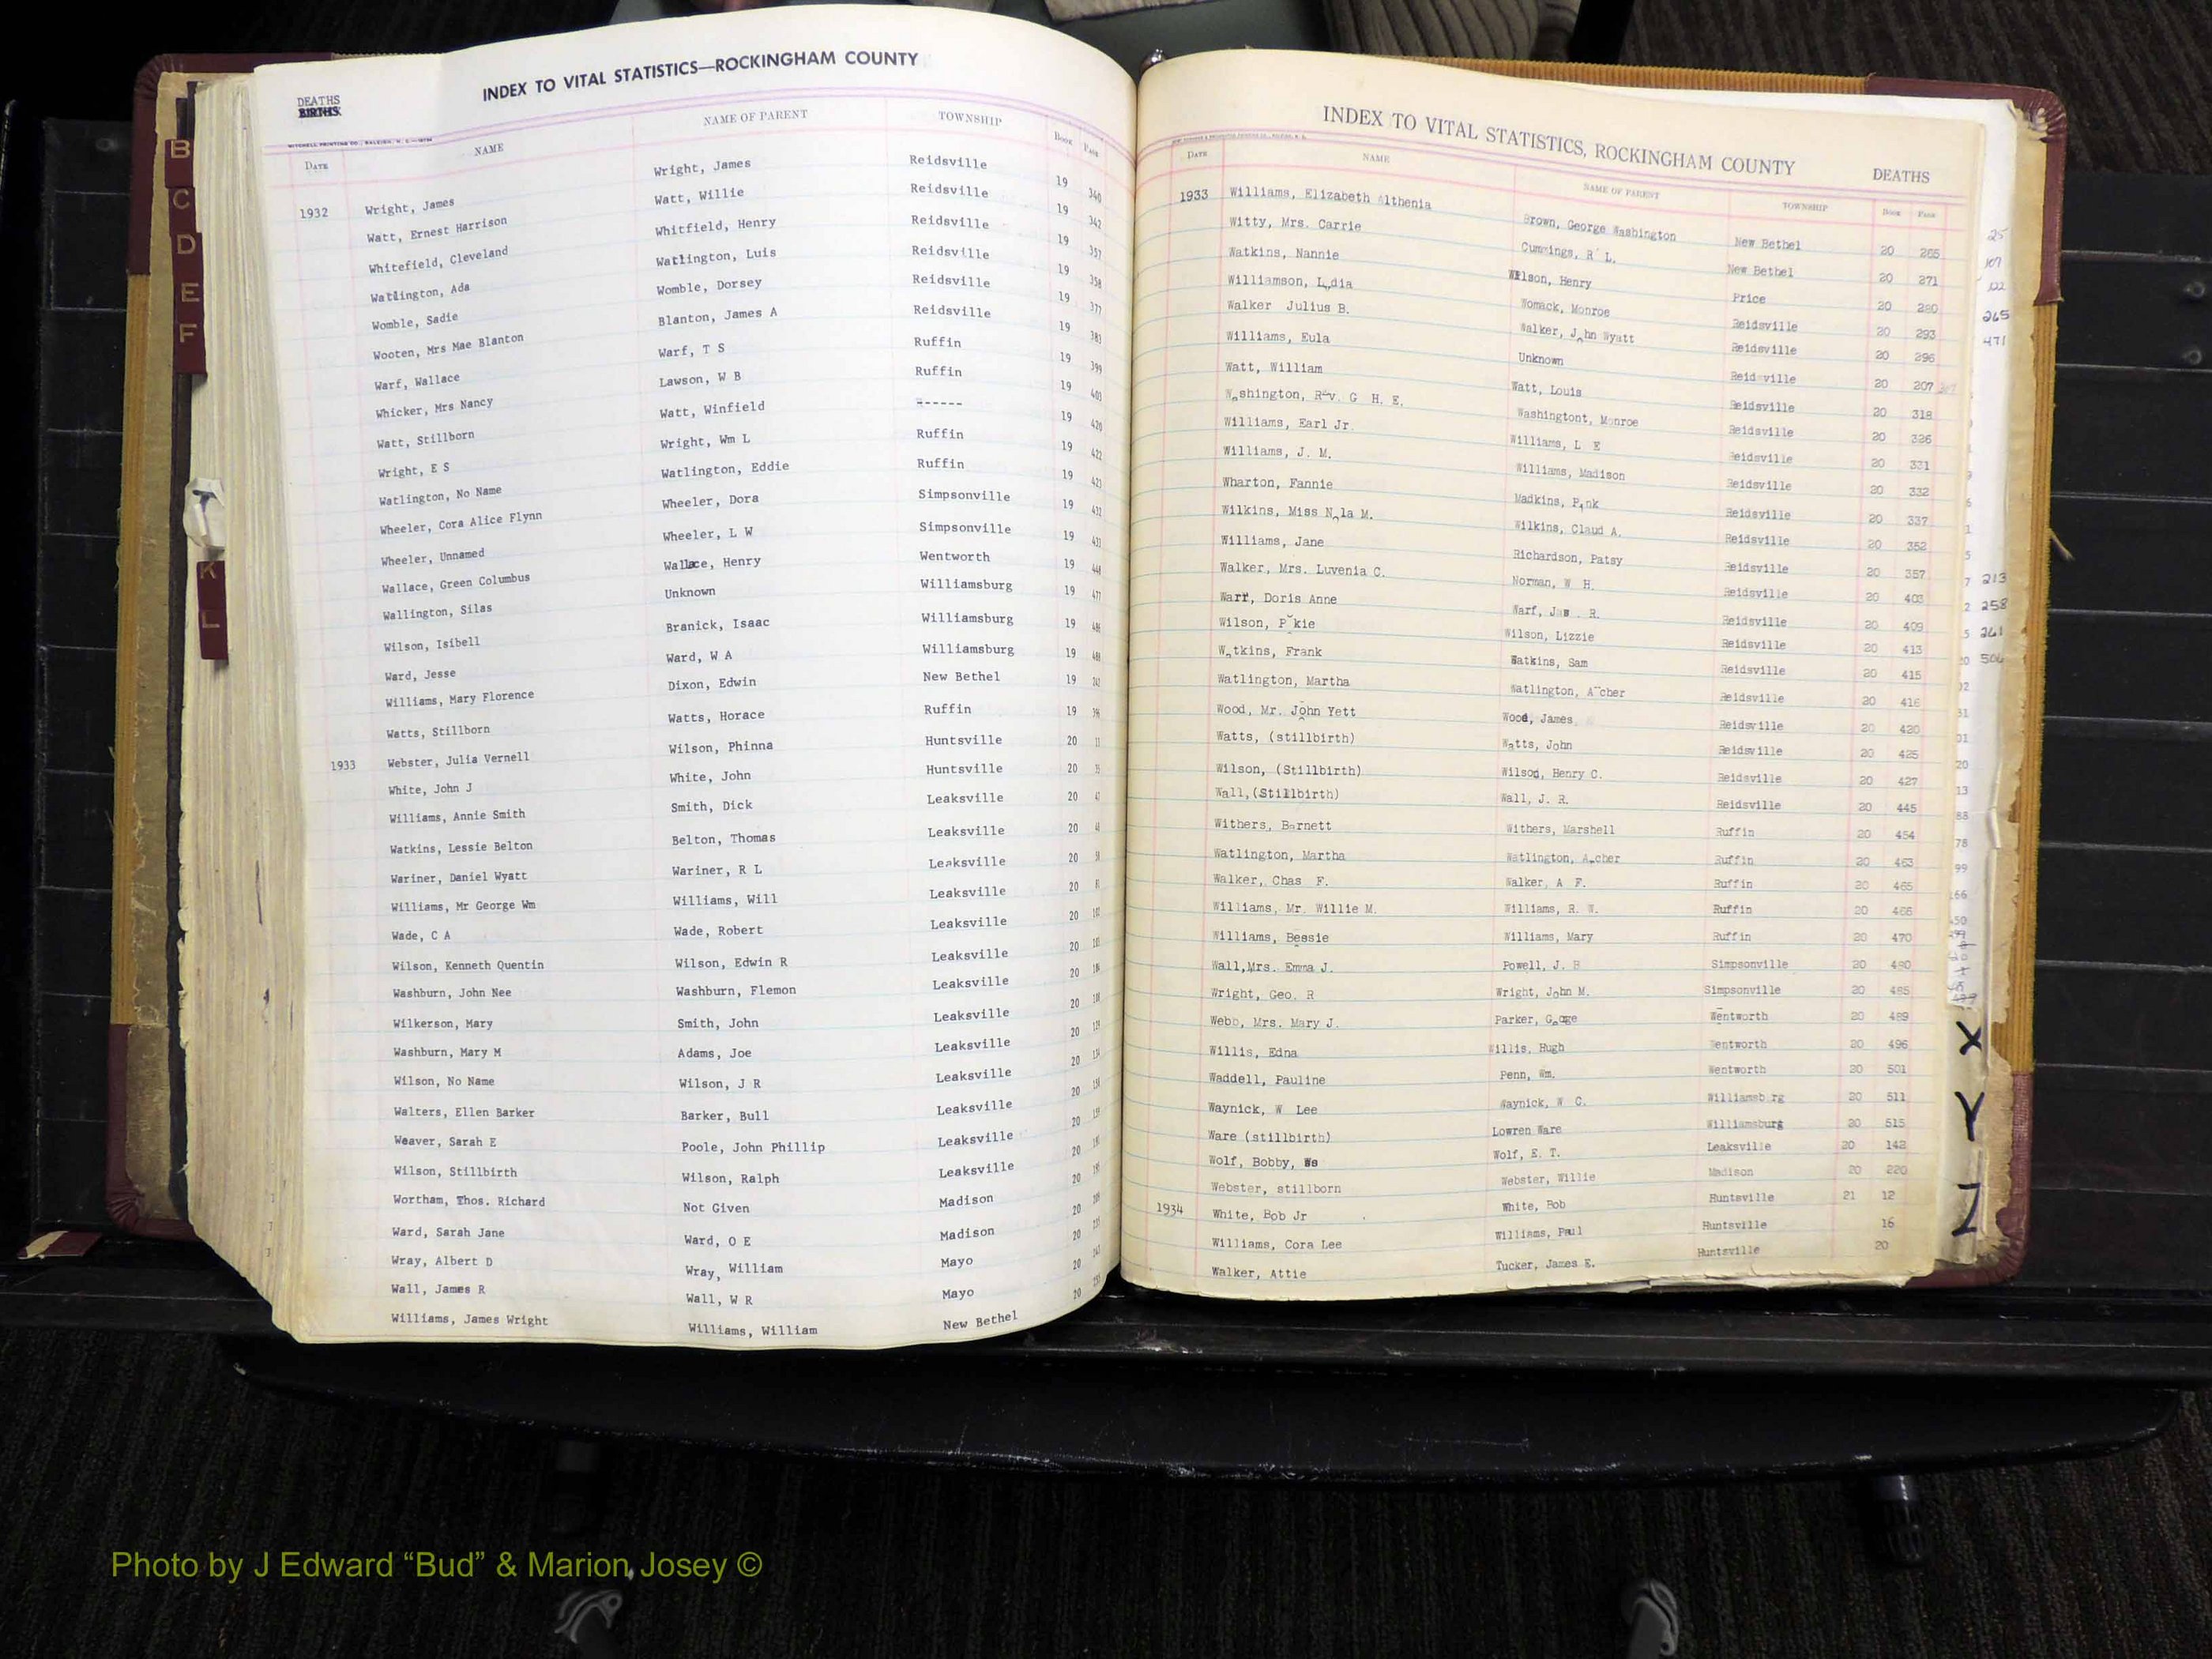 INDEX TO VITAL STATISTICS—ROCKINGHAM COUNTY
DEATHS
BIRTHS
MITCHELL PRINTING CO., RALEIGH, N. C.
DATE NAME NAME OF PARENT TOWNSHIP BOOK PAGE
1932 Wright, James Wright, James Reidsville 19 340
Watt, Ernest Harrison Watt, Willie Reidsville 19 342
Whitefield, Cleveland Whitfield, Henry Reidsville 19 357
Watlington, Ada Watlington, Luis Reidsville 19 358
Womble, Sadie Womble, Dorsey Reidsville 19 377
Wooten, Mrs Mae Blanton Blanton, James A Reidsville 19 383
Warf, Wallace Warf, T S Ruffin 19 399
Whicker, Mrs Nancy Lawson, W B Ruffin 19 403
Watt, Stillborn Watt, Winfield ------ 19 420
Wright, E S Wright, Wm L Ruffin 19 422
Watlington, No Name Watlington, Eddie Ruffin 19 423
Wheeler, Cora Alice Flynn Wheeler, Dora Simpsonville 19 432
Wheeler, Unnamed Wheeler, L W Simpsonville 19 433
Wallace, Green Columbus Wallace, Henry Wentworth 19
Wallington, Silas Unknown Williamsburg 19 477
Wilson, Isibell Branick, Isaac Williamsburg 19
Ward, Jesse Ward, W A Williamsburg 19
Williams, Mary Florence Dixon, Edwin New Bethel 19
Watts, Stillborn Watts, Horace Ruffin 19
1933 Webster, Julia Vernell Wilson, Phinna Huntsville 20
White, John J White, John Huntsville 20
Williams, Annie Smith Smith, Dick Leaksville 20
Watkins, Lessie Belton Belton, Thomas Leaksville 20
Wariner, Daniel Wyatt Wariner, R L Leaksville 20
Williams, Mr George Wm Williams, Will Leaksville 20
Wade, C A Wade, Robert Leaksville 20
Wilson, Kenneth Quentin Wilson, Edwin R Leaksville 20
Washburn, John Nee Washburn, Flemon Leaksville 20
Wilkerson, Mary Smith, John Leaksville 20
Washburn, Mary M Adams, Joe Leaksville 20
Wilson, No Name Wilson, J R Leaksville 20
Walters, Ellen Barker Barker, Bull Leaksville 20
Weaver, Sarah E Poole, John Phillip Leaksville 20
Wilson, Stillbirth Wilson, Ralph Leaksville 20
Wortham, Thos. Richard Not Given Madison 20
Ward, Sarah Jane Ward, O E Madison 20
Wray, Albert D Wray, William Mayo 20
Wall, James R Wall, W R Mayo 20
Williams, James Wright Williams, William New Bethel 20
INDEX TO VITAL STATISTICS, ROCKINGHAM COUNTY DEATHS
DATE NAME NAME OF PARENT TOWNSHIP BOOK PAGE
1933 Williams, Elizabeth Althenia Brown, George Washington New Bethel 20 265
Witty, Mrs. Carrie Cummings, R L. New Bethel 20 271
Watkins, Nannie Wilson, Henry Price 20 280
Williamson, Lydia Womack, Monroe Reidsville 20 293
Walker Julius B. Walker, John Wyatt Reidsville 20 296
Williams, Eula Unknown Reidsville 20 207 307
Watt, William Watt, Louis Reidsville 20 318
Washington, Rev. G H. E. Washingtont, Monroe Reidsville 20 326
Williams, Earl Jr. Williams, L E Reidsville 20 331
Williams, J. M. Williams, Madison Reidsville 20 332
Wharton, Fannie Madkins, Pink Reidsville 20 337
Wilkins, Miss Nola M. Wilkins, Claud A. Reidsville 20 352
Williams, Jane Richardson, Patsy Reidsville 20 357
Walker, Mrs. Luvenia C. Norman, W H. Reidsville 20 403
Warf, Doris Anne Warf, Jas. R. Reidsville 20 409
Wilson, Pokie Wilson, Lizzie Reidsville 20 413
Watkins, Frank Watkins, Sam Reidsville 20 415
Watlington, Martha Watlington, Archer Reidsville 20 416
Wood, Mr. John Yett Wood, James Reidsville 20 420
Watts, (stillbirth) Watts, John Reidsville 20 425
Wilson, (Stillbirth) Wilson, Henry C. Reidsville 20 427
Wall, (Stillbirth) Wall, J. R. Reidsville 20 445
Withers, Barnett Withers, Marshell Ruffin 20 454
Watlington, Martha Watlington, Archer Ruffin 20 463
Walker, Chas F. Walker, A F. Ruffin 20 465
Williams, Mr. Willie M. Williams, R. W. Ruffin 20 466
Williams, Bessie Williams, Mary Ruffin 20 470
Wall, Mrs. Emma J. Powell, J. B Simpsonville 20 480
Wright, Geo. R Wright, John M. Simpsonville 20 485
Webb, Mrs. Mary J. Parker, George Wentworth 20 489
Willis, Edna Willis, Hugh Wentworth 20 496
Waddell, Pauline Penn, Wm. Wentworth 20 501
Waynick, W Lee Waynick, W C. Williamsburg 20 511
Ware (stillbirth) Lowren Ware Williamsburg 20 515
Wolf, Bobby, We Wolf, E. T. Leaksville 20 142
Webster, stillborn Webster, Willie Madison 20 220
1934 White, Bob Jr White, Bob Huntsville 21 12
Williams, Cora Lee Williams, Paul Huntsville 16
Walker, Attie Tucker, James E. Huntsville 20
25
107
122
265
471
213
258
261
506
B
C
D
E
F
K
L
X
Y
Z
Photo by J Edward “Bud” & Marion Josey ©